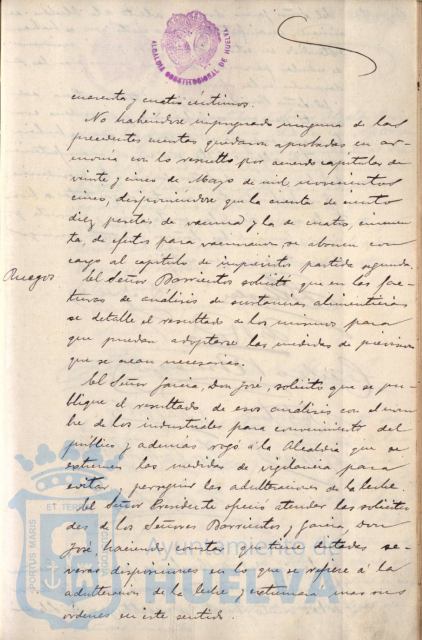 ALCALDIA CONSTITUCIONAL DE HUELVA
cuarenta y cuatro céntimos.
No habiéndose impugnado ninguna de las
precedentes cuentas quedaron aprobadas en ar-
monía con lo resuelto por acuerdo capitular de
veinte y cinco de Mayo de mil novecientos
cinco, disponiéndose que la cuenta de ciento
diez pesetas de vacuna y la de cuatro, cincuen-
ta, de efectos para vacunación se abonen con
cargo al capítulo de imprevistos partida segunda.
Ruegos
El Señor Barrientos solicitó que en las fac-
turas de análisis de sustancias alimenticias
se detalle el resultado de los mismos para
que puedan adoptarse las medidas de previsión
que se crean necesarias.
El Señor García, Don José, solicitó que se pu-
blique el resultado de esos análisis con el nom-
bre de los industriales para conocimiento del
público y además rogó á la Alcaldía que se
extremen las medidas de vigilancia para
evitar y perseguir las adulteraciones de la leche
El Señor Presidente ofreció atender las solicitu-
des de los Señores Barrientos y García, Don
José, haciendo constar que tiene dictadas se-
veras disposiciones en lo que se refiere á la
adulteración de la leche y extremará mas sus
órdenes en este sentido.
PORTUS MARIS
ET TERRAE CUSTODIA
Ayuntamiento de
HUELVA